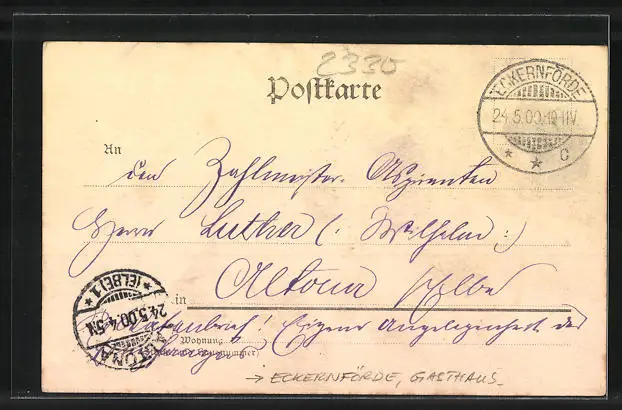 2330
Postkarte
ECKERNFÖRDE
24.5.00.10-11V.
* * C
An
den Zahlmeister-Aspiranten
Herrn Luther (: Wilhelm :)
in Altona /Elbe
Soldatenbrief! Eigene Angelegenheit des
Wohnung
(Straße und Hausnummer)
ALTONA
24.5.00.4-5N
* (ELBE) 1 *
→ ECKERNFÖRDE, GASTHAUS